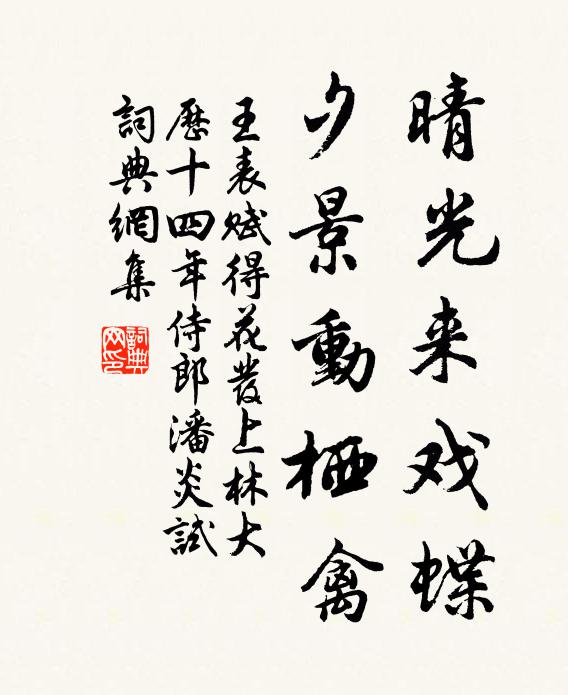 晴光来戏蝶
夕景動栖禽
王表赋得花發上林大
歷十四年侍郎潘炎試
詞典網集
詞典網印